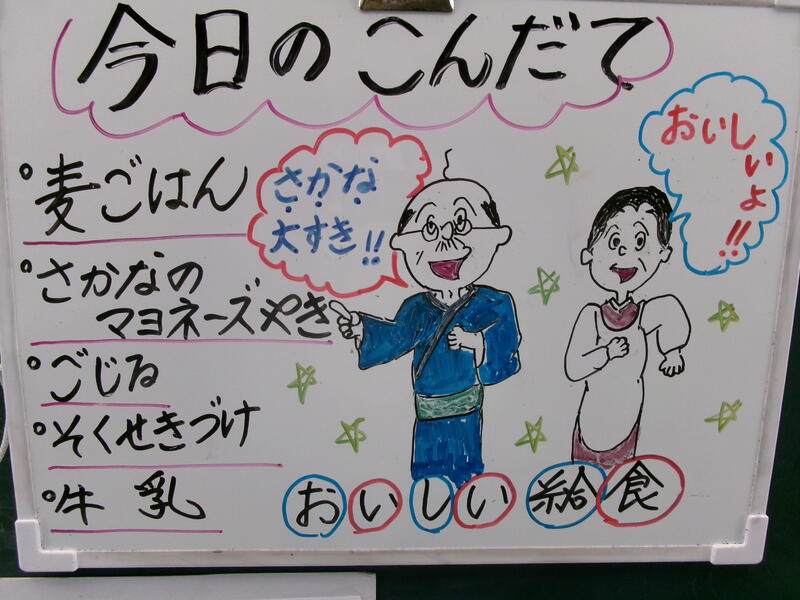 今日のこんだて
麦ごはん
さかなの
マヨネーズやき
ごじる
そくせきづけ
牛乳
さかな
大すき!!
おいしいよ!!
おいしい給食